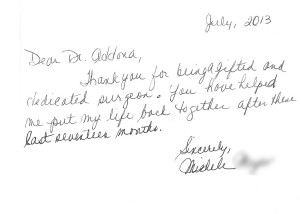 July, 2013
Dear Dr. Addona,
Thank you for being gifted and
dedicated surgeon. You have helped
me put my life back together after these
last seventeen months.
Sincerely,
Michele